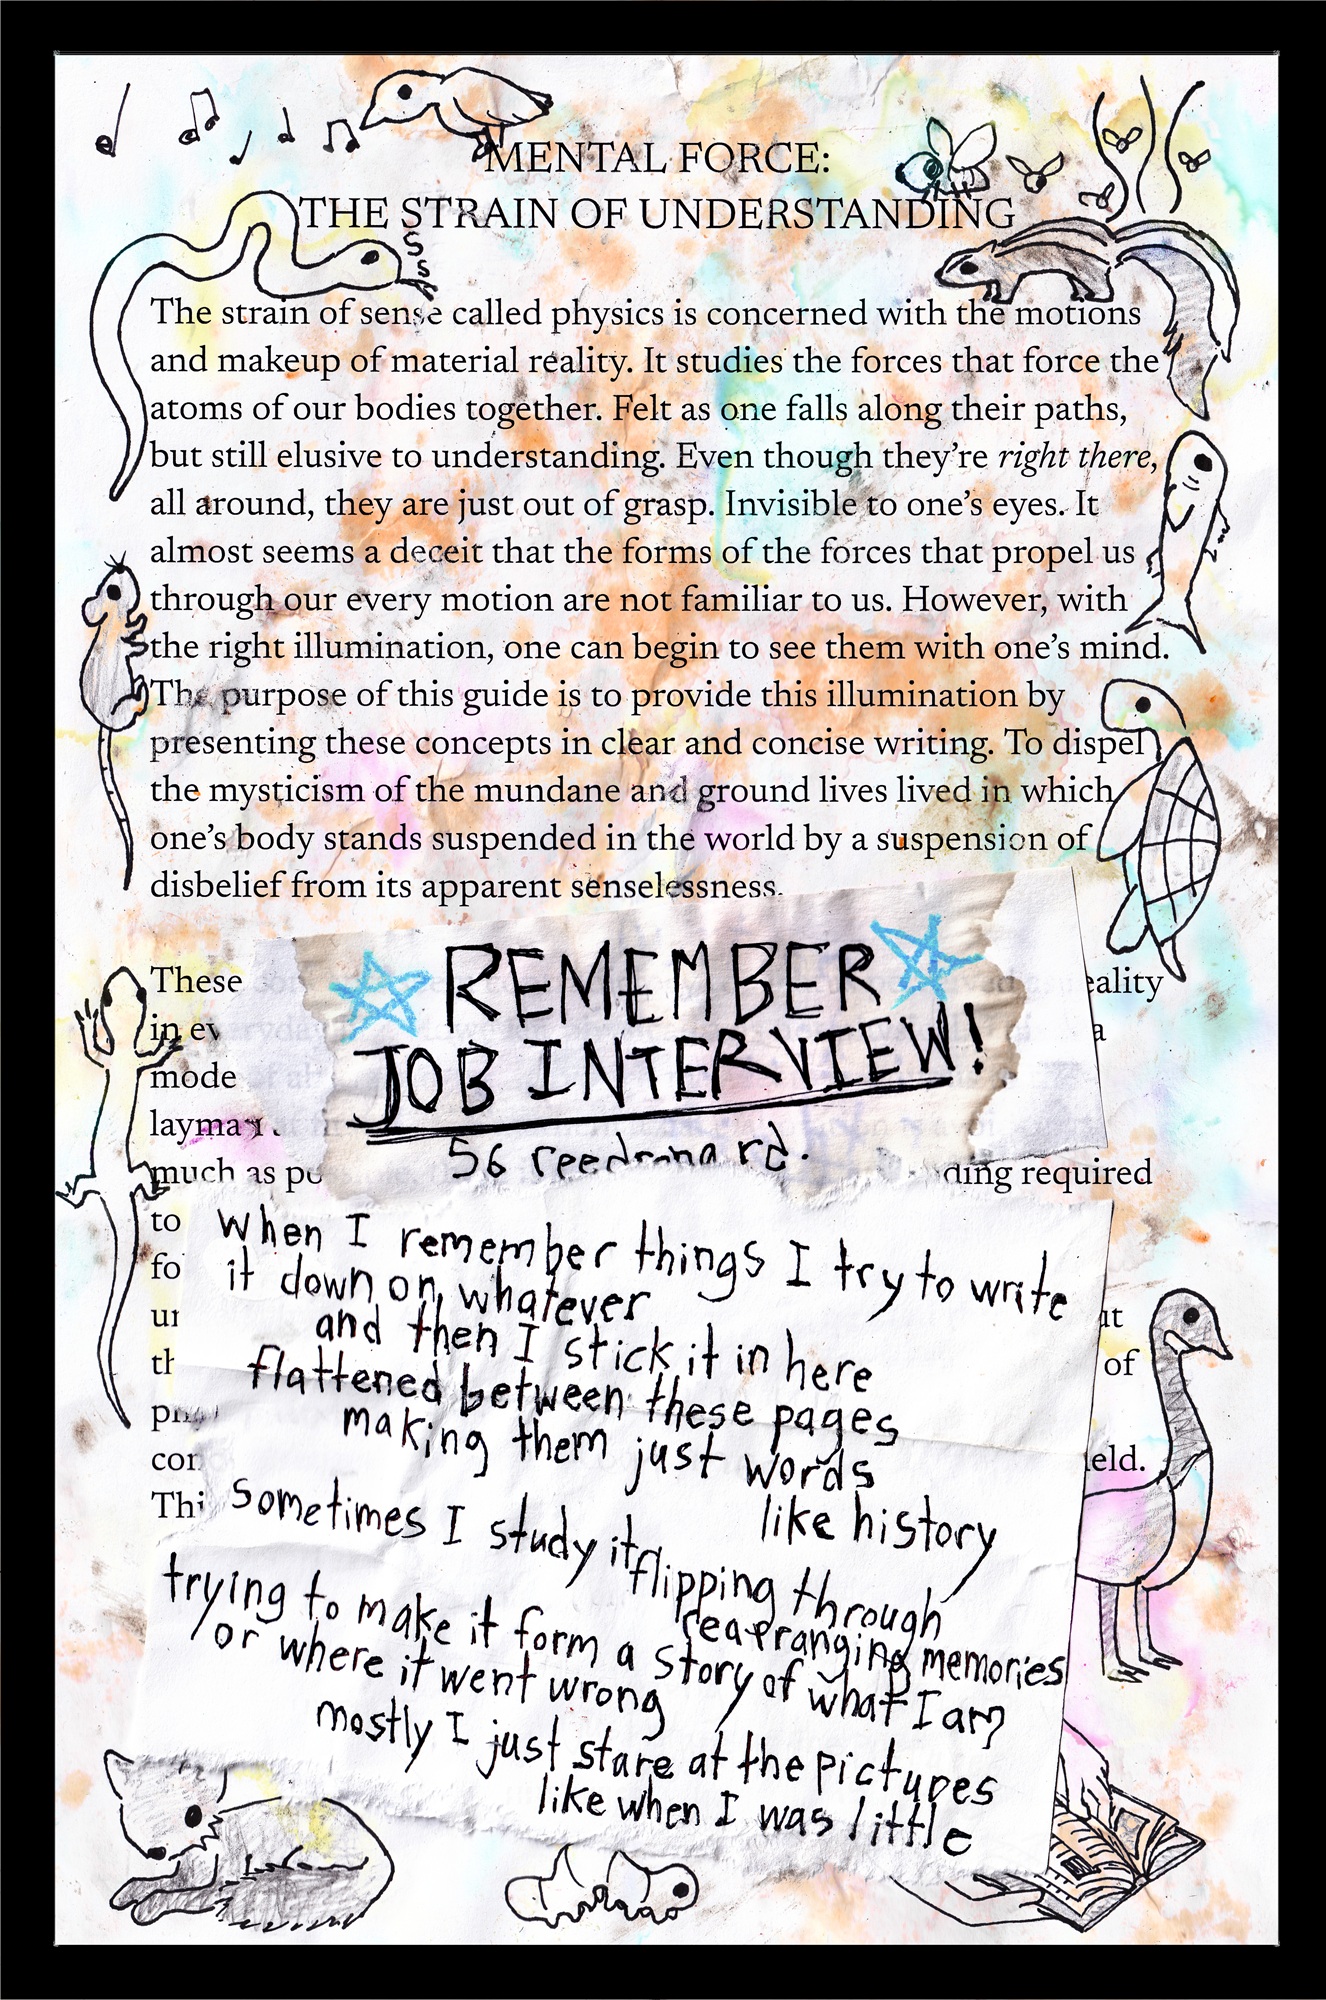 MENTAL FORCE:
THE STRAIN OF UNDERSTANDING
S
S
S
The strain of sense called physics is concerned with the motions
and makeup of material reality. It studies the forces that force the
atoms of our bodies together. Felt as one falls along their paths,
but still elusive to understanding. Even though they’re right there,
all around, they are just out of grasp. Invisible to one’s eyes. It
almost seems a deceit that the forms of the forces that propel us
through our every motion are not familiar to us. However, with
the right illumination, one can begin to see them with one’s mind.
The purpose of this guide is to provide this illumination by
presenting these concepts in clear and concise writing. To dispel
the mysticism of the mundane and ground lives lived in which
one’s body stands suspended in the world by a suspension of
disbelief from its apparent senselessness.
These
in
mode
much as
ding required
to
of
REMEMBER
JOB INTERVIEW!
56 rd.
When I remember things I try to write
it down on whatever
and then I stick it in here
flattened between these pages
making them just words
like history
Sometimes I study it flipping through
rearranging memories
trying to make it form a story of what I am
or where it went wrong
mostly I just stare at the pictures
like when I was little